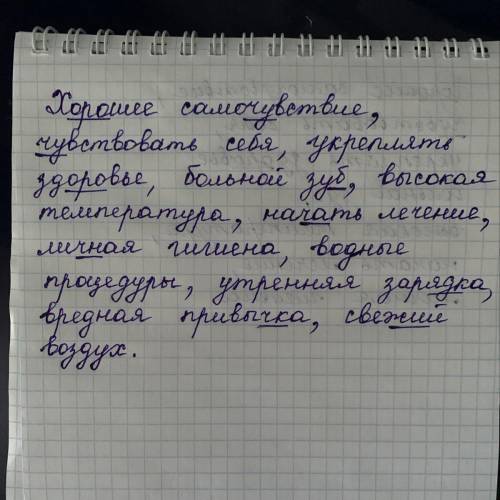 Хорошее самочувствие,
чувствовать себя, укреплять
здоровье, больной зуб, высокая
температура, начать лечение,
личная гигиена, водные
процедуры, утренняя зарядка,
вредная привычка, свежий
воздух.